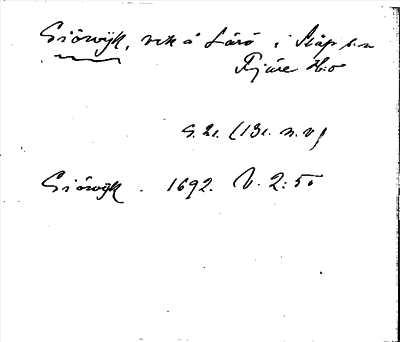 Siöwijk, vik å Lärö i Släp s:n
Fjäre H:d
S. 21. (131. n. v)
Siöwijk. 1692. V. 2:50